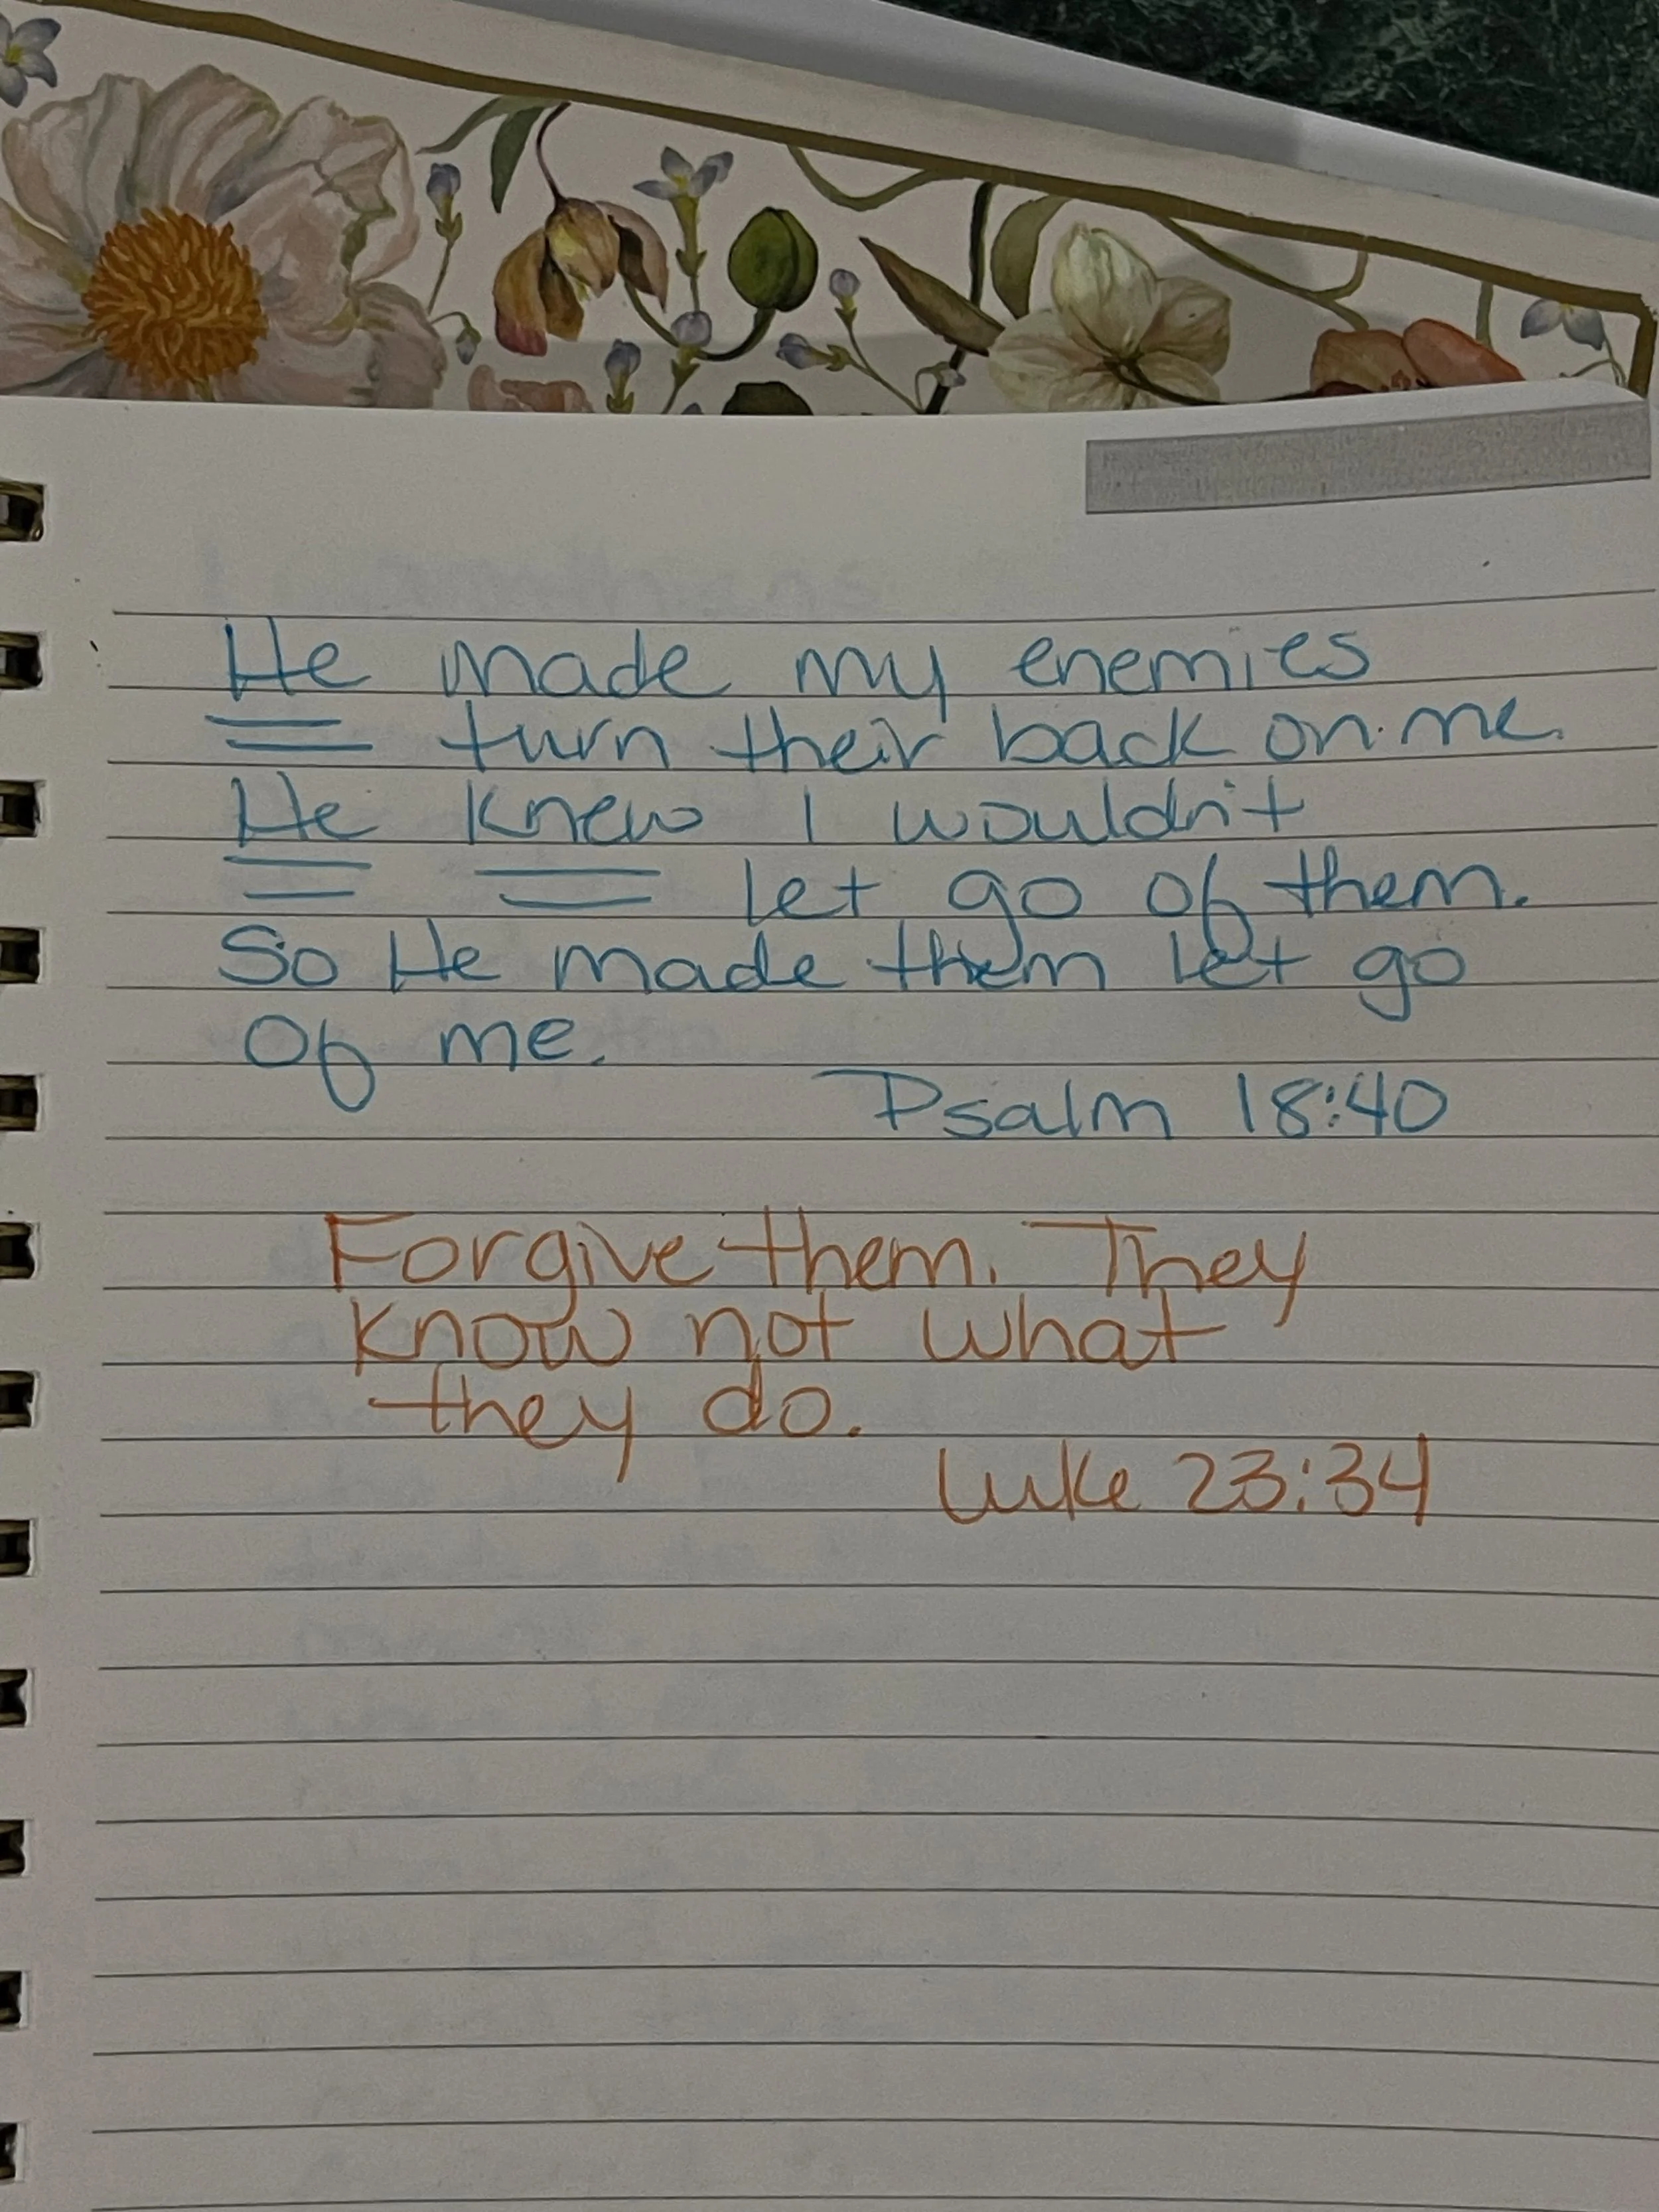 He made my enemies
turn their back on me.
He knew I wouldn't
let go of them.
So He made them let go
of me.
Psalm 18:40
Forgive them. They
know not what
they do.
Luke 23:34